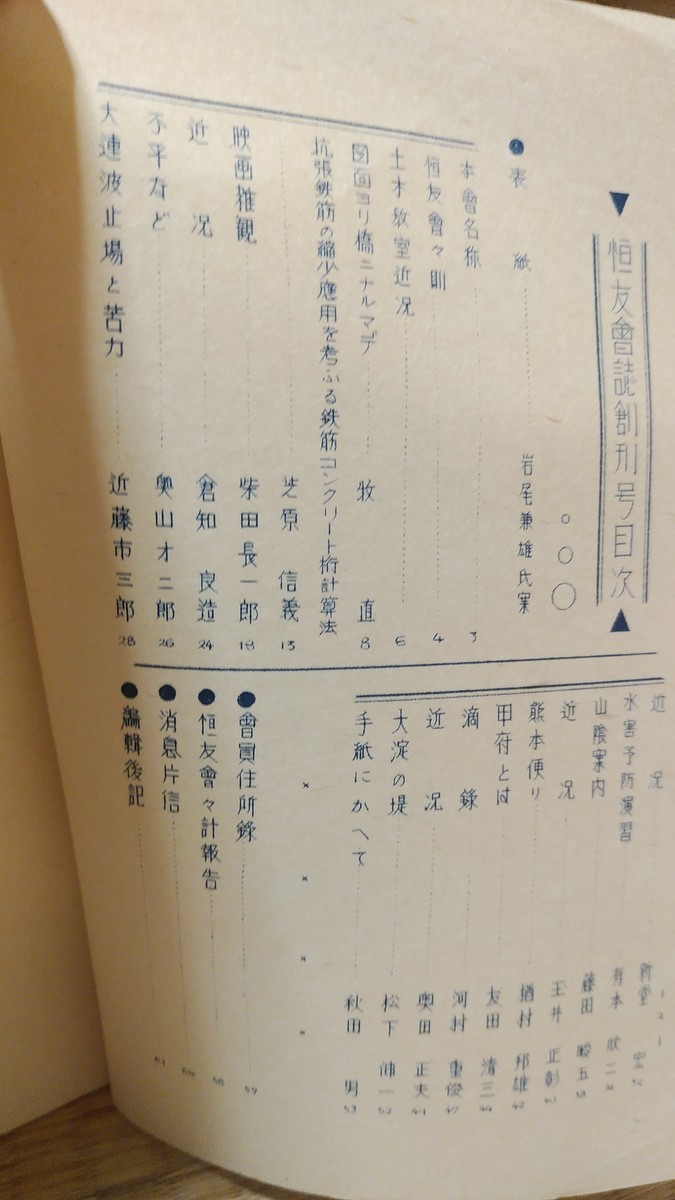 ▼恒友會誌創刊号目次▲
●表紙 岩尾兼雄氏案
本會名称 3
恒友會々則 4
土木教室近况 6
図面ヨリ橋ニナルマデ 牧直 8
抗張鉄筋の縮少應用を考ふる鉄筋コンクリート桁計算法
芝原信義 13
映画推観 柴田長一郎 18
近况 倉知良造 24
不平など 奥山才二郎 26
大連波止場と苦力 近藤市三郎 28
近况 新堂
水害予防演習 有本欣二
山陰案内 藤田五
近况 玉井正彰
熊本便り 楢村邦雄 42
甲府とは 友田清三
滴錄 河村重俊 47
近况 奥田正夫 49
大淀の堤 松下伸一 52
手紙にかへて 秋田男 53
××××
●會員住所錄 57
●恒友會々計報告 58
●消息片信 60
●編輯後記 61